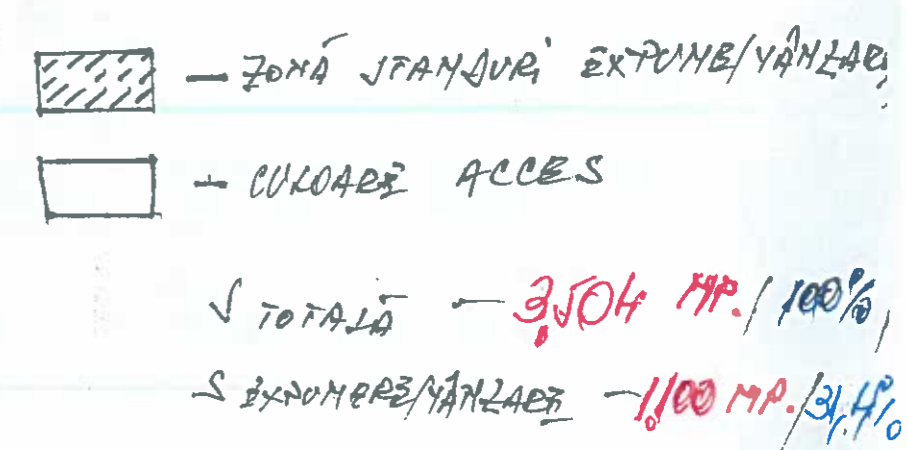 — ZONĂ STANDURI EXPUNE/VÂNZARI
— CULOARE ACCES
S TOTALĂ — 3.504 MP./100%
S EXPUNERE/VÂNZARE — 1.100 MP./31,4%